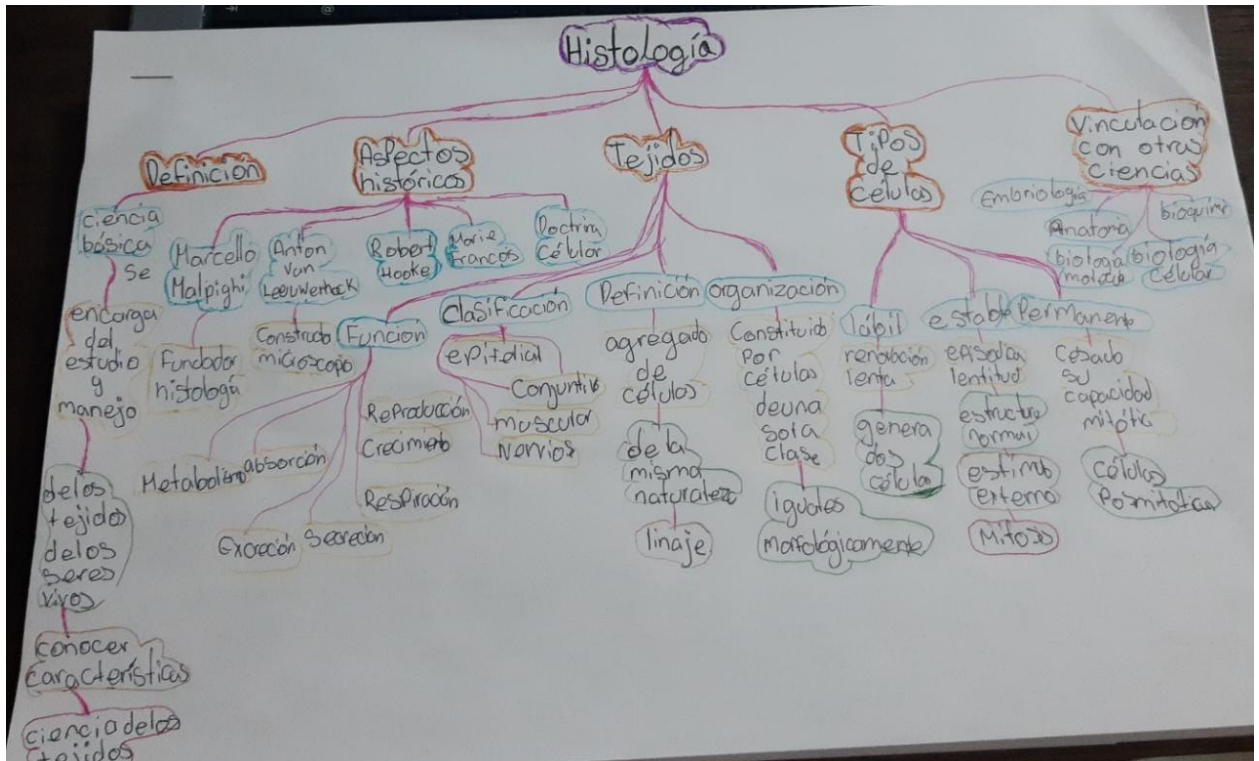 Histología
Definición
ciencia
básica
se
encarga
del
estudio
y
manejo
delos
tejido
delos
seres
vivos
conocer
características
ciencia delos
tejidos
Aspectos
históricos
Marcello
Malpighi
Fundador
histología
Anton
Van
Leeuwenhock
Construdo
microscopio
Robert
Hooke
Marie
Francos
Doctrina
Célular
Tejidos
Función
Metabolismo
absorción
Excreción
Secreción
Reproducción
Crecimiento
Respiración
Clasificación
epitelial
Conjuntivo
muscular
Nervios
Definición
agregado
de
células
de la
misma
naturaleza
linaje
organización
Constituido
Por
células
deuna
sola
clase
iguales
morfológicamente
Tipos
de
células
lábil
renovación
lenta
genera
dos
célula
estable
episodica
lentitud
estructura
normal
estimulo
externo
Mitosis
Permanente
Cesado
su
capacidad
mitótic
células
Posmitotica
Vinculación
con otras
ciencias
Embriología
Anatomia
biología
biología
Célular
bioquimi